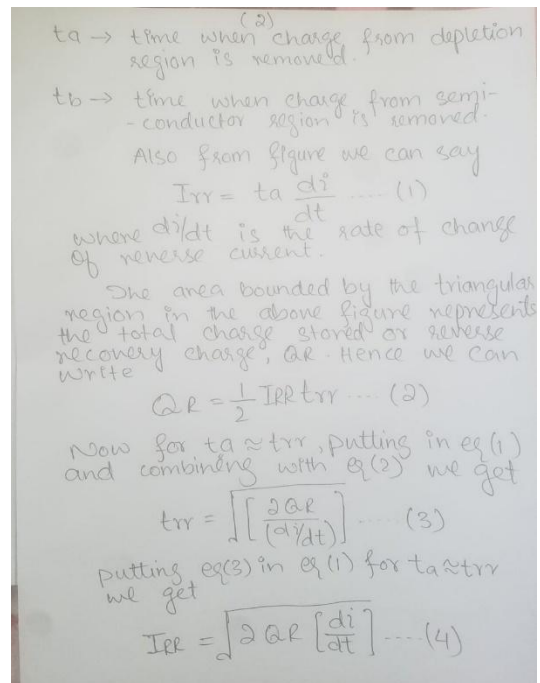 (2)
ta → time when charge from depletion
region is removed.
tb → time when charge from semi-
- conductor region is removed.
Also from figure we can say
Irr = ta di/dt ..... (1)
where di/dt is the rate of change
of reverse current.
The area bounded by the triangular
region in the above figure represents
the total charge stored or reverse
recovery charge, QR. Hence we can
write
QR = 1/2 IRR trr .... (2)
Now for ta ≈ trr, putting in eq (1)
and combining with eq (2) we get
trr = √[2QR/(di/dt)] ..... (3)
putting eq(3) in eq (1) for ta ≈ trr
we get
IRR = √2QR [di/dt] .....(4)